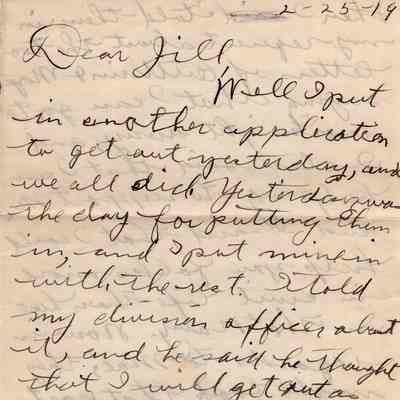 2-25-19
Dear Jill,
Well I put
in another application
to get out yesterday, and
we all did. Yesterday was
the day for putting them
in, and I put mine in
with the rest. I told
my division officer about
it, and he said he thought
that I will get out as